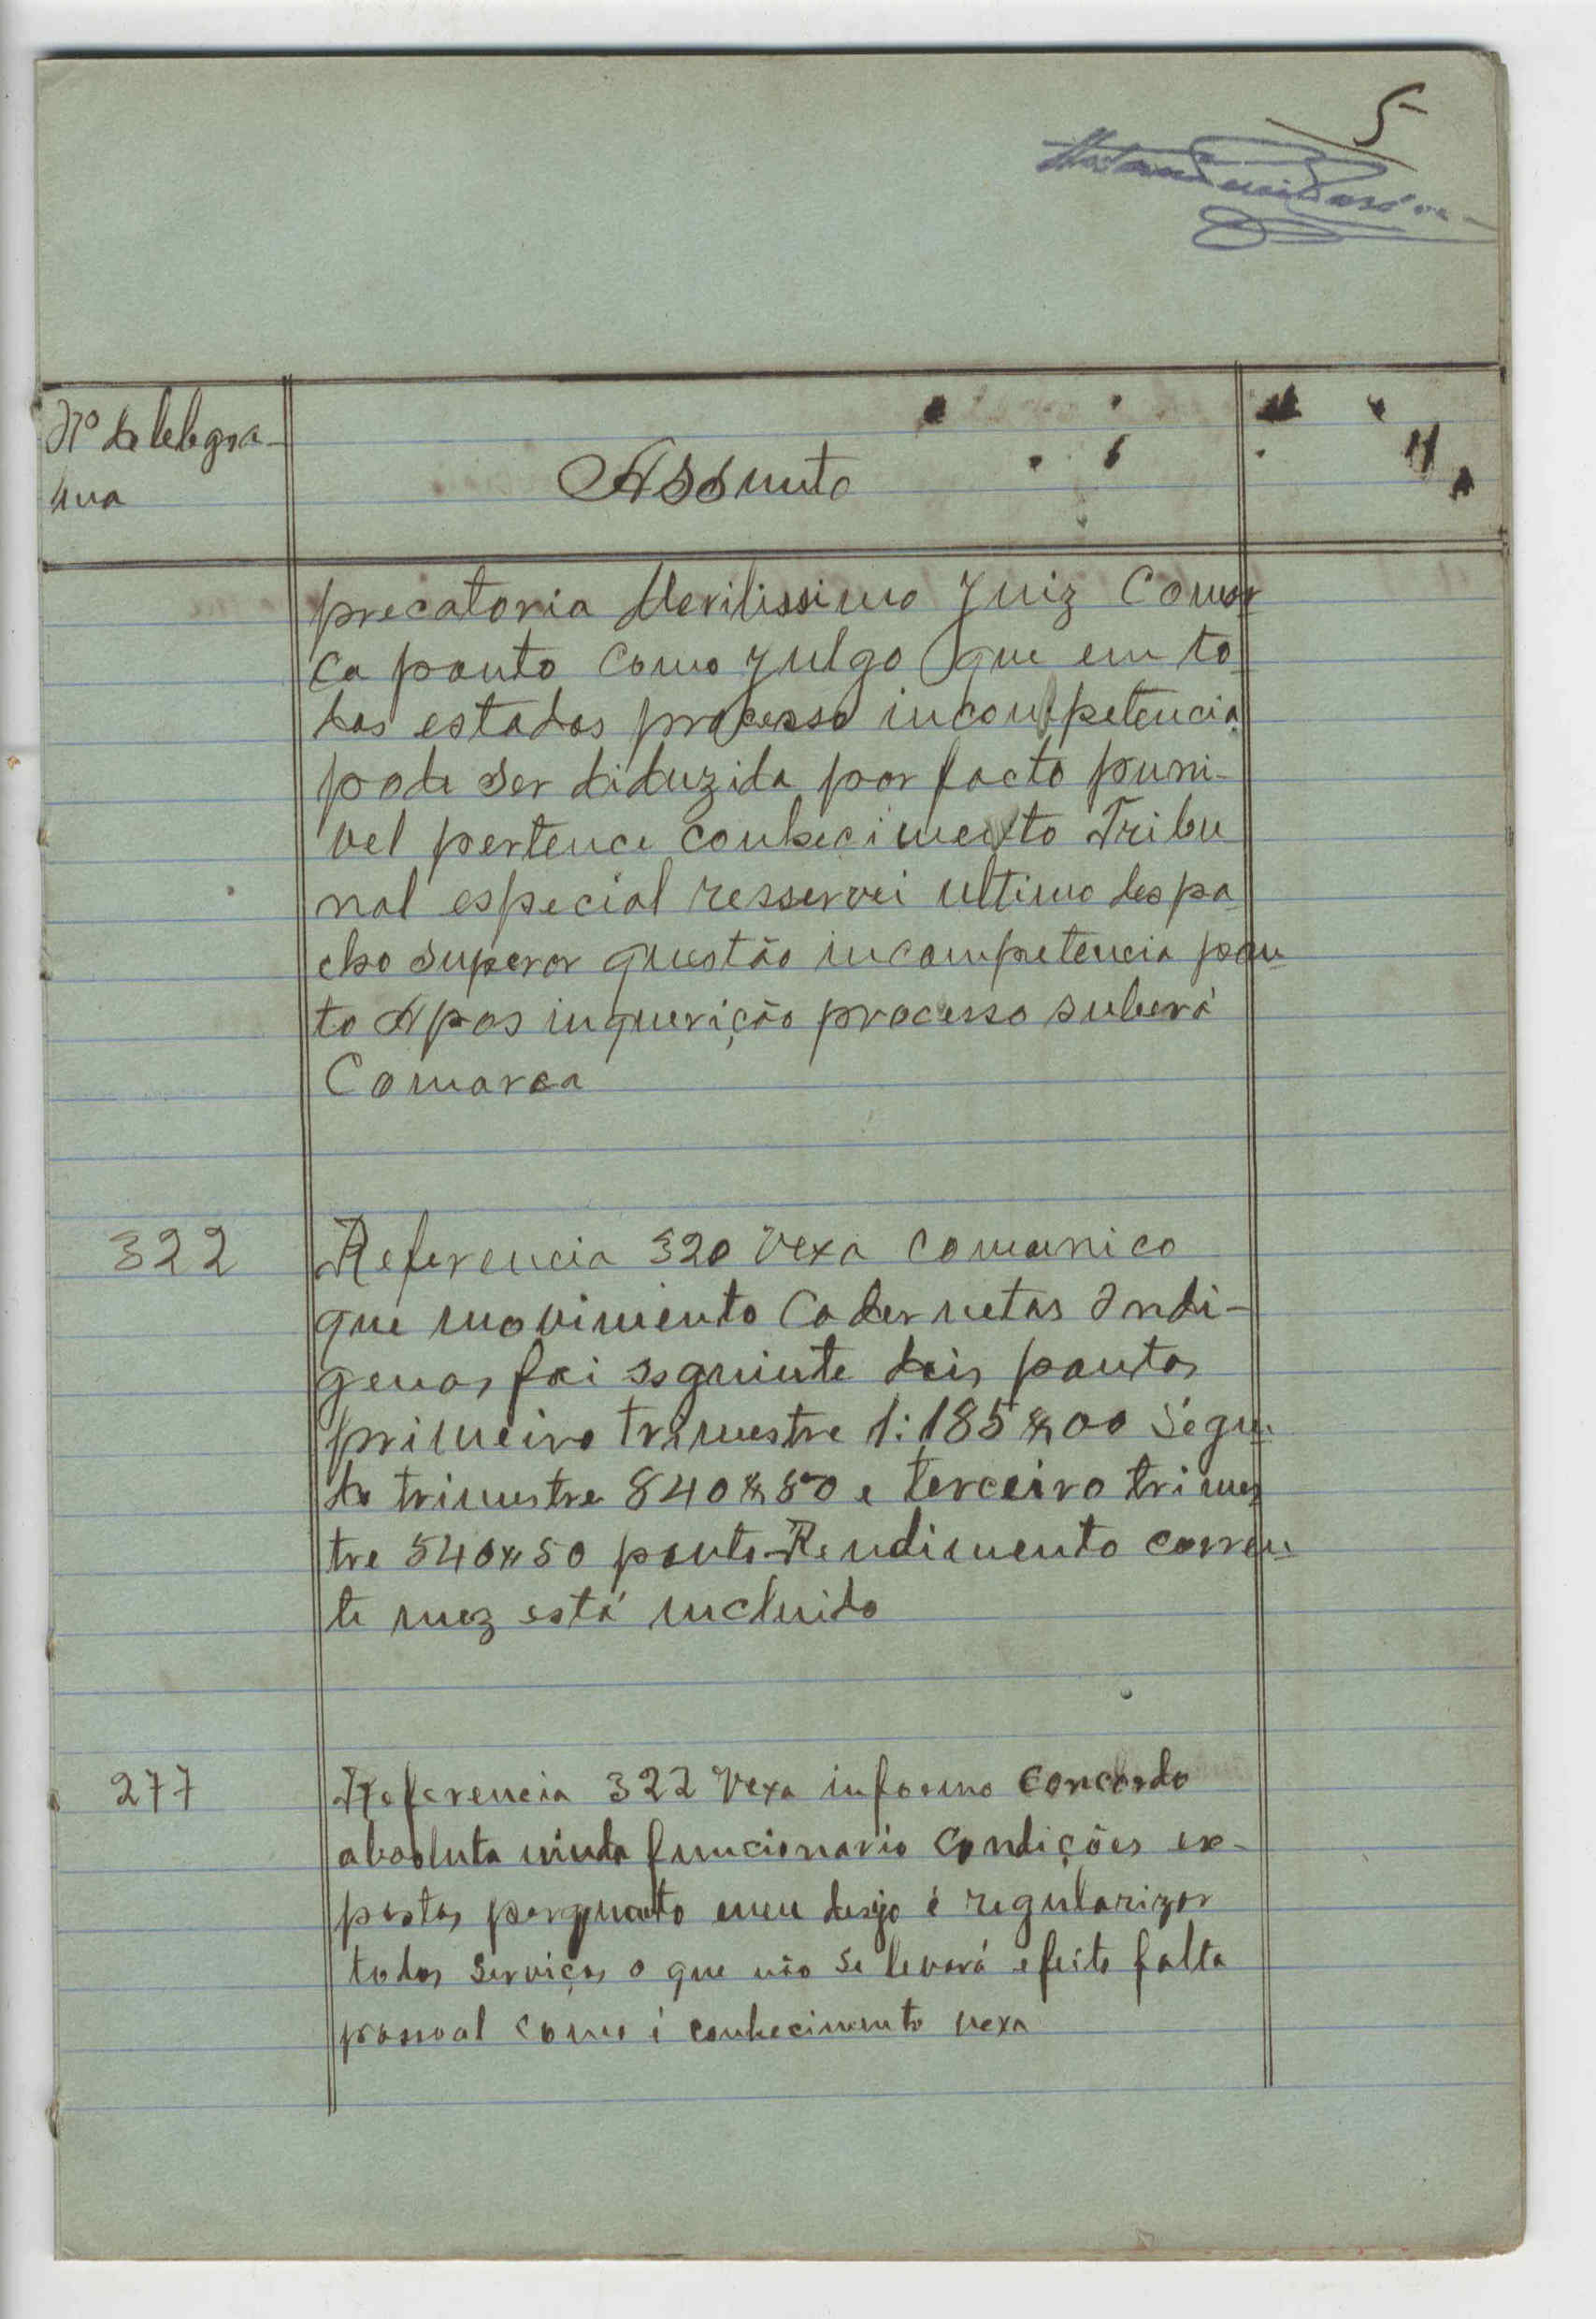 5
Nº de telegra-
ma
Assunto
precatoria Meritissimo Juiz Comar
ca ponto Como julgo que em to
dos estados processo incompetencia
pode ser diduzida por facto puni-
vel pertence conhecimento Tribu
nal especial resservei ultimo despa
cho superor questão incompetencia pon
to Apos inquerição processo suberá
Comarca
322
Referencia 320 Vexa comunico
que movimento Cadernetas Indi-
genas foi seguinte dois pontos
primeiro trimestre 1:185$00 Segun
do trimestre 840$80 e terceiro trimes
tre 540$50 ponto Rendimento corren
te mez está incluido
277
Referencia 322 Vexa informo concordo
absoluta vinda funcionario condições ex-
postas porquanto meu desejo é regularizar
todos serviços o que não se levará efeito falta
pessoal como é conhecimento vexa